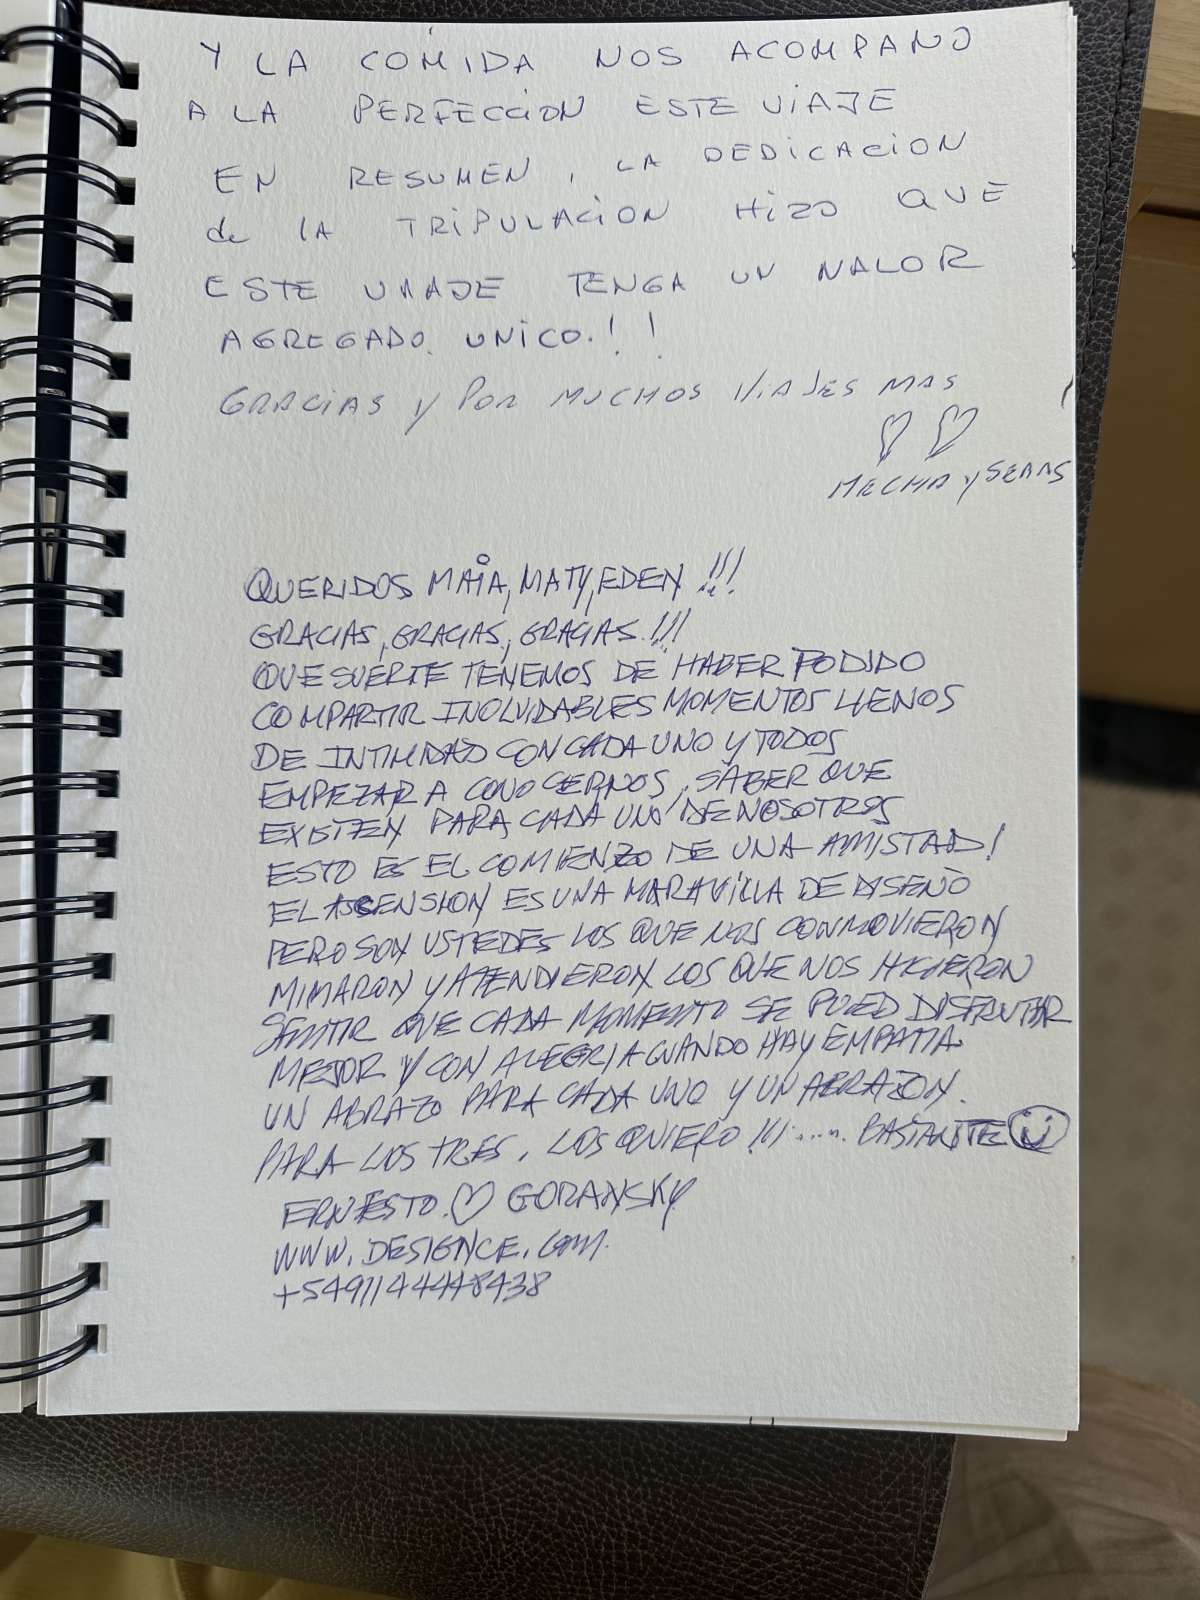 Y LA COMIDA NOS ACOMPAÑO
A LA PERFECCION ESTE VIAJE
EN RESUMEN, LA DEDICACION
de LA TRIPULACION HIZO QUE
ESTE VIAJE TENGA UN VALOR
AGREGADO UNICO.!!
GRACIAS Y POR MUCHOS VIAJES MAS
MECHA Y SEBAS
QUERIDOS MAIA, MATY, EDEN !!!
GRACIAS, GRACIAS, GRACIAS.!!!
QUE SUERTE TENEMOS DE HABER PODIDO
COMPARTIR INOLVIDABLES MOMENTOS LLENOS
DE INTIMIDAD CON CADA UNO Y TODOS
EMPEZAR A CONOCERNOS, SABER QUE
EXISTEN PARA CADA UNO DE NOSOTROS
ESTO ES EL COMIENZO DE UNA AMISTAD!
EL ASCENSION ES UNA MARAVILLA DE DISEÑO
PERO SON USTEDES LOS QUE NOS CONMOVIERON
MIMARON Y ATENDIERON LOS QUE NOS HICIERON
SENTIR QUE CADA MOMENTO SE PUED DISFRUTAR
MEJOR Y CON ALEGRIA CUANDO HAY EMPATIA.
UN ABRAZO PARA CADA UNO Y UN ABRAZON.
PARA LOS TRES, LOS QUIERO !!! ..... BASTANTE
ERNESTO. GORANSKY
WWW.DESIGNCE.COM.
+5491144448438